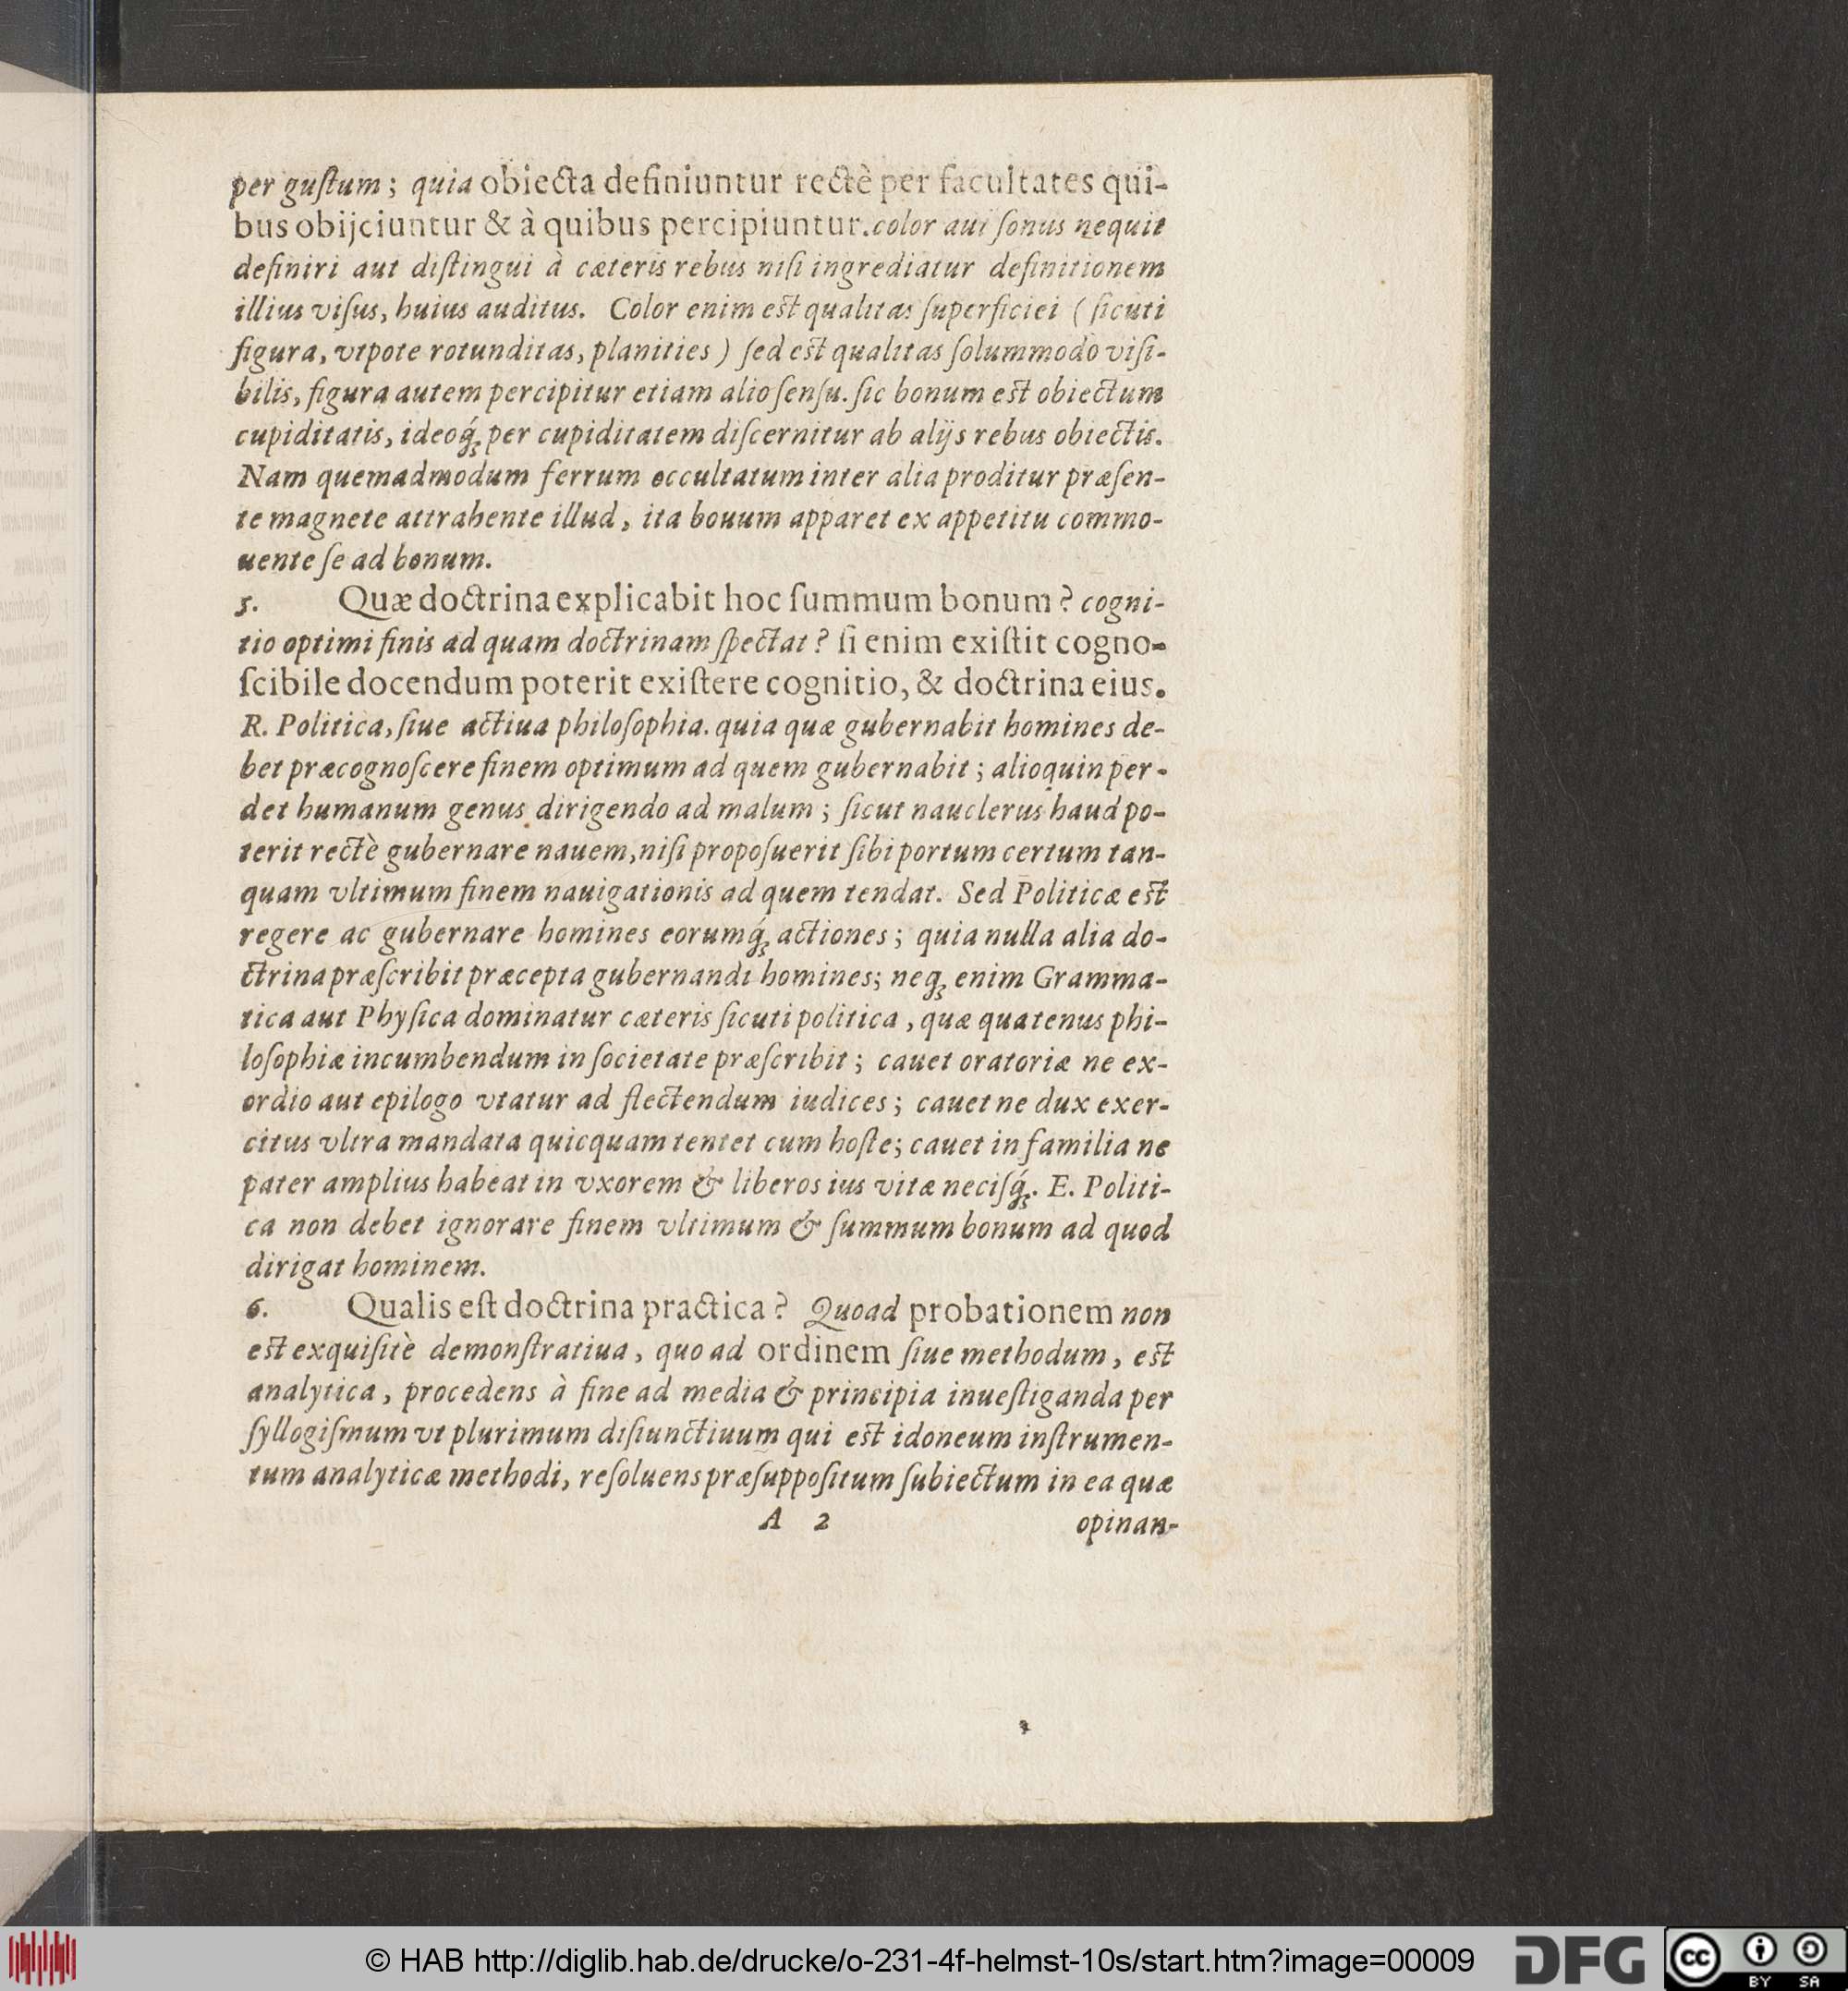 per guſtum; quia obiecta definiuntur rectè per facultates qui-
bus obijciuntur & à quibus percipiuntur. color aut ſonus nequit
definiri aut diſtingui à cæteris rebus niſi ingrediatur definitionem
illius viſus, huius auditus. Color enim eſt qualitas ſuperficiei (ſicuti
figura, vtpote rotunditas, planities) ſed eſt qualitas ſolummodò viſi-
bilis, figura autem percipitur etiam alio ſenſu. ſic bonum eſt obiectum
cupiditatis, ideoq́ꝫ per cupiditatem diſcernitur ab alijs rebus obiectis.
Nam quemadmodum ferrum occultatum inter alia proditur præſen-
te magnete attrahente illud, ita bouum apparet ex appetitu commo-
uente ſe ad bonum.
5. Quæ doctrina explicabit hoc ſummum bonum? cogni-
tio optimi finis ad quam doctrinam ſpectat? ſi enim exiſtit cogno-
ſcibile docendum poterit exiſtere cognitio, & doctrina eius.
R. Politica, ſiue actiua philoſophia. quia quæ gubernabit homines de-
bet præcognoſcere finem optimum ad quem gubernabit; alioquin per-
det humanum genus dirigendo ad malum; ſicut nauclerus haud po-
terit rectè gubernare nauem, niſi propoſuerit ſibi portum certum tan-
quam vltimum finem nauigationis ad quem tendat. Sed Politicæ eſt
regere ac gubernare homines eorumq́ꝫ actiones; quia nulla alia do-
ctrina præſcribit præcepta gubernandi homines; neqꝫ enim Gramma-
tica aut Phyſica dominatur cæteris ſicuti politica, quæ quatenus phi-
loſophiæ incumbendum in ſocietate præſcribit; cauet oratoriæ ne ex-
ordio aut epilogo vtatur ad flectendum iudices; cauet ne dux exer-
citus vltra mandata quicquam tentet cum hoſte; cauet in familia ne
pater amplius habeat in vxorem & liberos ius vitæ neciſq́ꝫ. E. Politi-
ca non debet ignorare finem vltimum & ſummum bonum ad quod
dirigat hominem.
6. Qualis eſt doctrina practica? Quoad probationem non
eſt exquiſitè demonſtratiua, quo ad ordinem ſiue methodum, eſt
analytica, procedens à fine ad media & principia inueſtiganda per
ſyllogiſmum vt plurimum diſiunctiuum qui eſt idoneum inſtrumen-
tum analyticæ methodi, reſoluens præſuppoſitum ſubiectum in ea quæ
A 2 opinan-
© HAB http://diglib.hab.de/drucke/o-231-4f-helmst-10s/start.htm?image=00009
DFG
cc BY SA